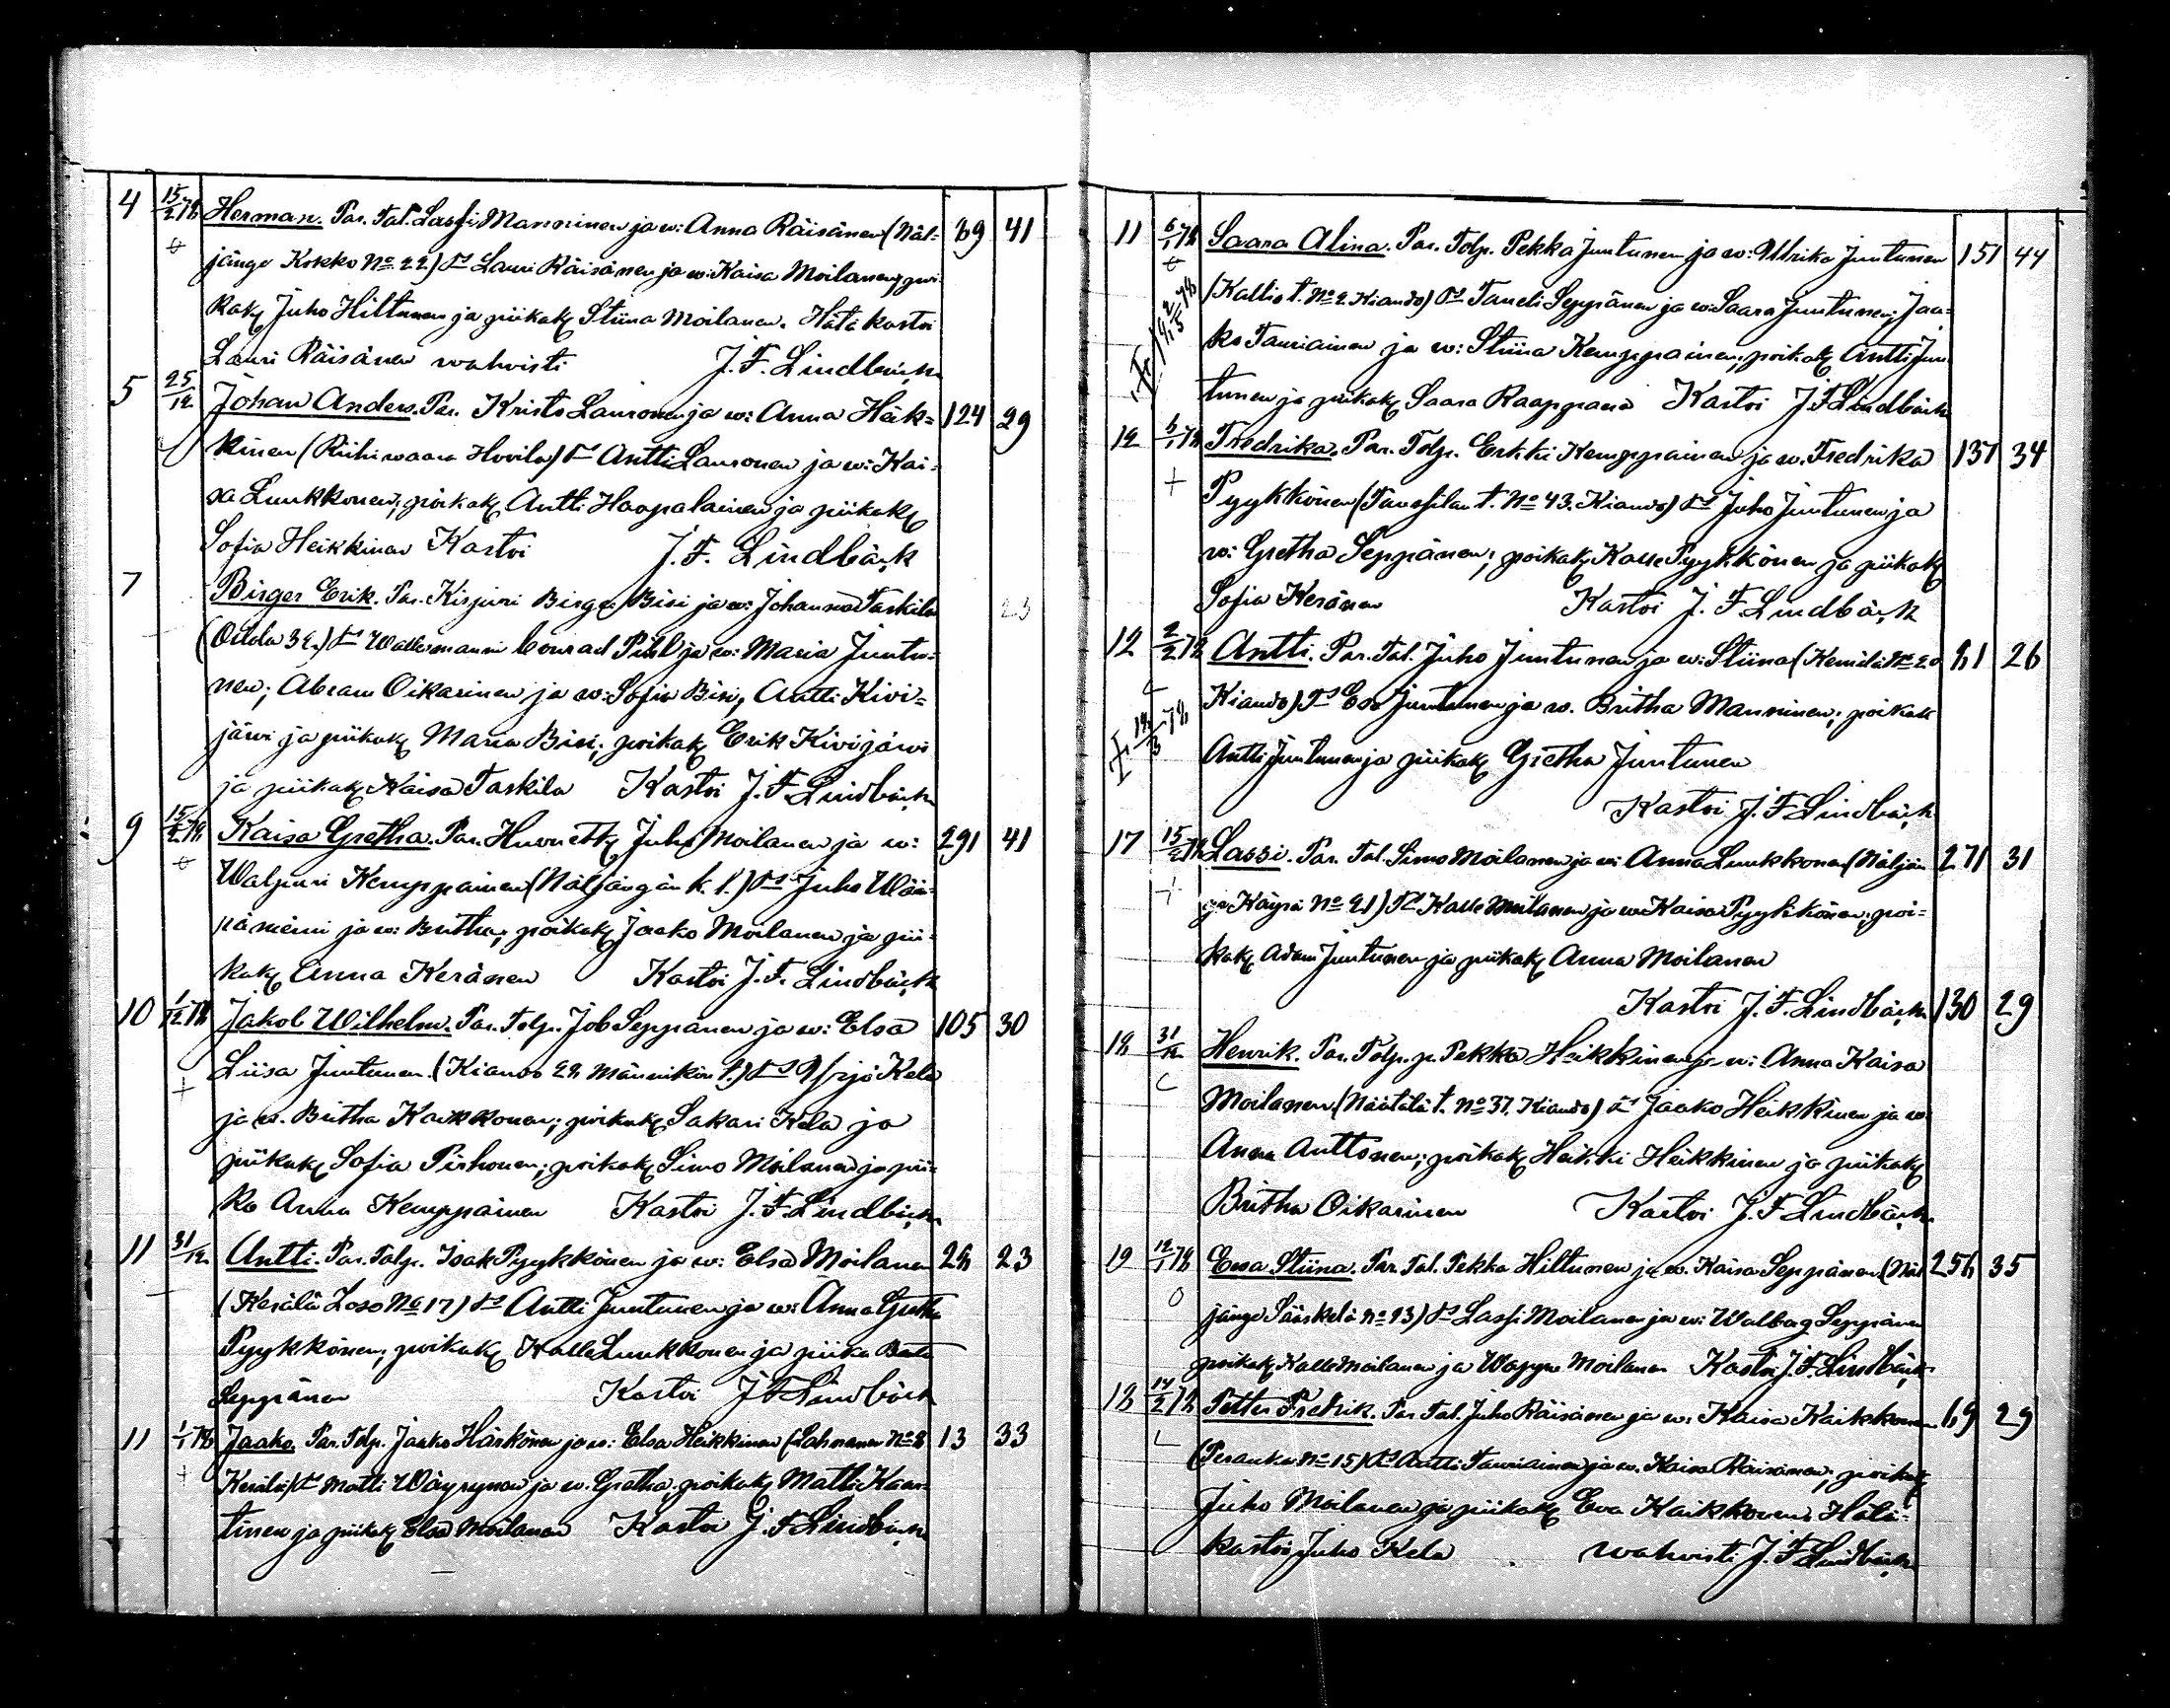 4 15/2 78 Herman. Par. Tal. Lassi Manninen ja w: Anna Räisänen (Näl= 89 41
jängö Kokko No 22.) Ts Lauri Räisänen ja w: Kaisa Moilanen; poi=
kak Juho Hiltunen ja piikak Stiina Moilanen. Hätäkastoi
Lauri Räisänen wahwisti J. F. Lindbäck
5 25/12 Johan Anders. Par. Kristo Lauronen ja w: Anna Häk= 124 29
kinen (Riihiwaara Howila) Ts Antti Lauronen ja w: Kai=
sa Luukkonen; poikak Antti Haapalainen ja piikak
Sofia Heikkinen Kastoi J. F. Lindbäck
7 Birger Erik. Par. Kirjuri Birger Bisi ja w: Johanna Taskila 23
(Oilola 32.) Ts Wallesmanni Conrad Pihl ja w: Maria Juntu=
nen; Abram Oikarinen ja w: Sofia Bisi, Antti Kivi=
järwi ja piikak Maria Bisi; poikak Erik Kivijärwi
ja piikak Kaisa Taskila Kastoi J. F. Lindbäck
9 15/2 78 Kaisa Gretha. Par. Huon Juho Moilanen ja w: 291 41
Walpuri Kemppainen (Näljängän k. l.) Ts Juho Wäi=
nämeini ja w: Britha; poikak Jaako Moilanen ja pii=
kak Anna Keränen Kastoi J. F. Lindbäck
10 1/12 78 Jakob Wilhelm. Par. Tolp. Job Seppänen ja w: Elsa 105 30
Liisa Juntunen. (Kiando 28 Männikön t.) Ts Yrjö Kela
ja w. Britha Kaikkonen; poikak Sakari Kela ja
piikak Sofia Pirhonen; poikak Simo Moilanen ja pii=
ka Anna Kemppainen Kastoi J. F. Lindbäck
11 31/12 Antti. Par. Talp. Isak Pyykkönen ja w: Elsa Moilanen 28 23
(Kerälä Loso No 17) Ts Antti Juntunen ja w: Anna Gretha
Pyykkönen; poikak Kalle Luukkonen ja piika
Seppänen Kastoi J. F. Lindbäck
11 1/1 78 Jaako. Par. Tolp. Jaako Härkönen ja w: Elsa Heikkinen (Lahnanen No 8 13 33
Kerälä) Ts Matti Wäyrynen ja w. Gretha; poikak Matti Kaar=
tinen ja piikak Elsa Moilanen Kastoi J. F. Lindbäck
11 6/1 78 Saara Alina. Par. Tolp. Pekka Juntunen ja w: Ulrika Juntunen 151 44
(Kallio t. No 2. Kiando) Ts Taneli Seppänen ja w: Saara Juntunen; Jaa=
ko Tauriainen ja w: Stiina Kemppainen; poikak Antti Jun=
tunen ja piikak Saara Raappana Kastoi J. F. Lindbäck
12 6/1 78 Fredrika. Par. Tolp. Erkki Kemppainen ja w. Fredrika 137 34
Pyykkönen (Taussilan t. No 43. Kiando) Ts Juho Juntunen ja
w: Gretha Seppänen; poikak Kalle Pyykkönen ja piikak
Sofia Keränen Kastoi J. F. Lindbäck
12 2/2 78 Antti. Par. Tal. Juho Juntunen ja w: Stiina (Kemilä No 20 81 26
Kiando) Ts Esa Juntunen ja w. Britha Manninen; poikak
Antti Juntunen ja piikak Gretha Juntunen
Kastoi J. F. Lindbäck
17 15/2 78 Lassi. Par. Tal. Simo Moilanen ja w: Anna Luukkonen (Näljän= 271 31
gö Käyrä No 21) Ts Kalle Moilanen ja w: Kaisa Pyykkönen; poi=
kak Adam Juntunen ja piikak Anna Moilanen
Kastoi J. F. Lindbäck 130 29
18 31/12 Henrik. Par. Tolp. p. Pekka Heikkinen ja w: Anna Kaisa
Moilanen (Näätälä t. No 37. Kiando) Ts Jaako Heikkinen ja w:
Anna Anttonen; poikak Heikki Heikkinen ja piikak
Britha Oikarinen Kastoi J. F. Lindbäck
19 12/1 78 Ewa Stiina. Par. Tal. Pekka Hiltunen ja w. Kaisa Seppänen (Näl 256 35
jängö Sääskelä No 23) Ts Lassi Moilanen ja w: Walborg Seppänen
poikak Kalle Moilanen ja Moilanen Kastoi J. F. Lindbäck
18 14/2 78 Petter Fredrik. Par. Tal. Juho Räisänen ja w: Kaisa Kaikkonen 69 29
(Peranka No 15) Ts Antti Tauriainen ja w. Kaisa Räisänen; poikak
Juho Moilanen ja piikak Ewa Kaikkonen. Hätä=
kastoi Juho Kela wahwisti J. F. Lindbäck